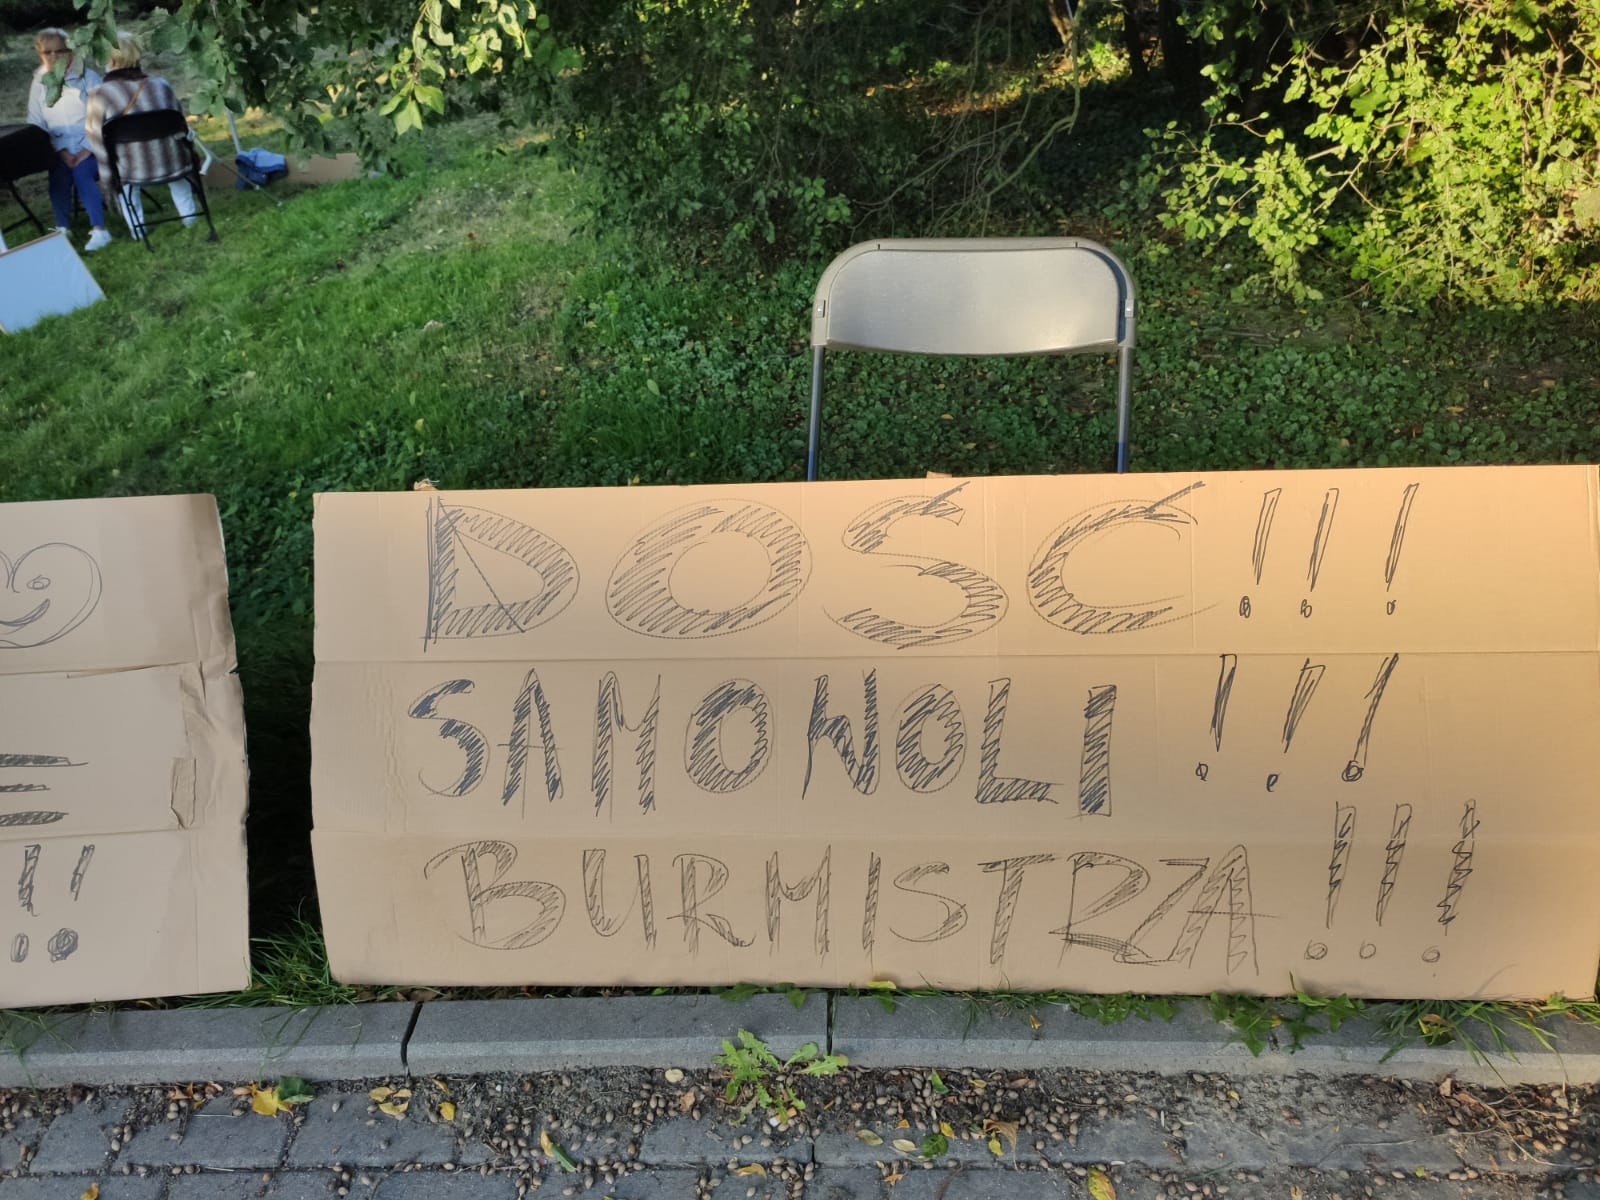 DOSC!!!
SAMOWOLI!!!
BURMISTRZA!!!
!!